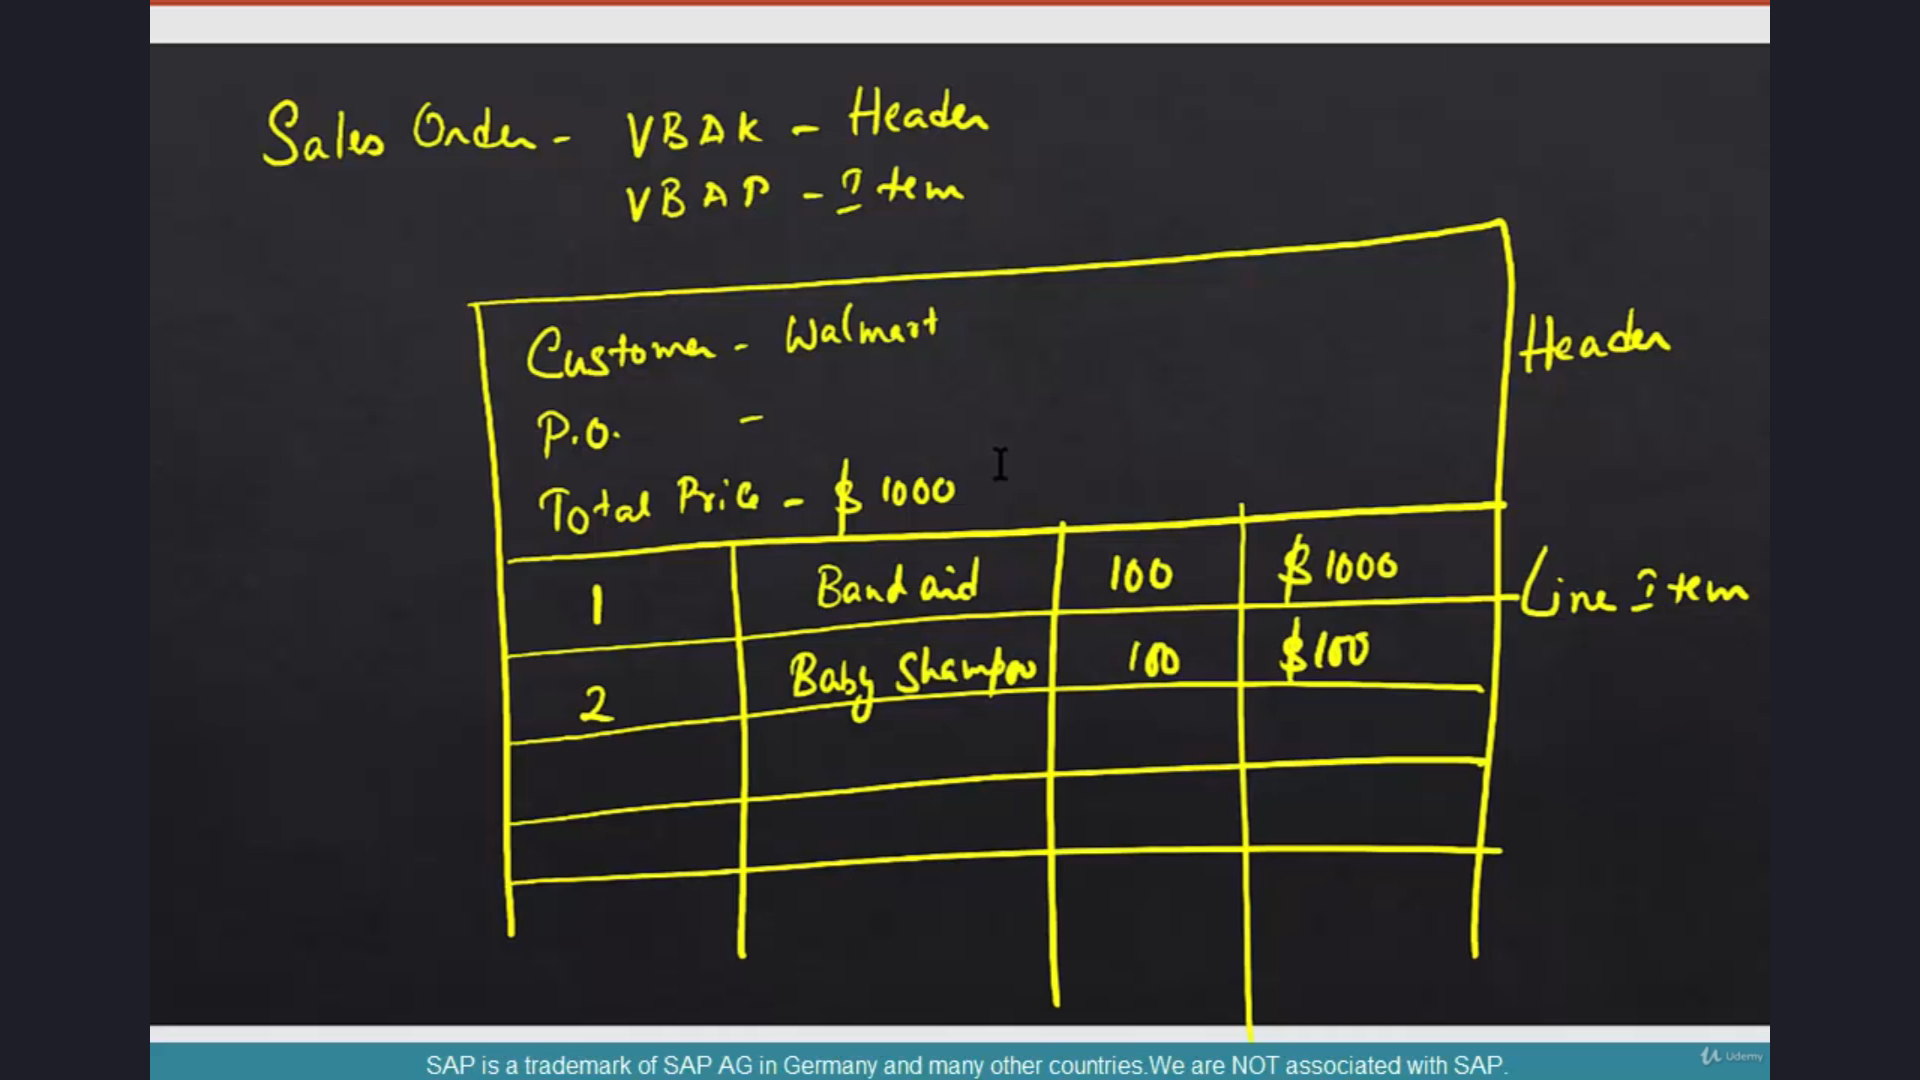 Sales Order - VBAK - Header
VBAP - Item
Customer - Walmart
Header
P.O. -
Total Price - $ 1000
1 Band aid 100 $ 1000
Line Item
2 Baby Shampoo 100 $100
SAP is a trademark of SAP AG in Germany and many other countries.We are NOT associated with SAP.
Udemy